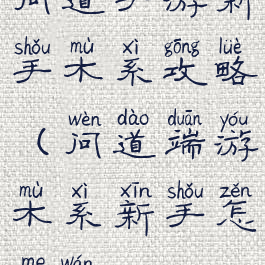 问道手游新
shǒu mù xì gōng lüè
手木系攻略
wèn dào duān yóu
（问道端游
mù xì xīn shǒu zěn
木系新手怎
me wán